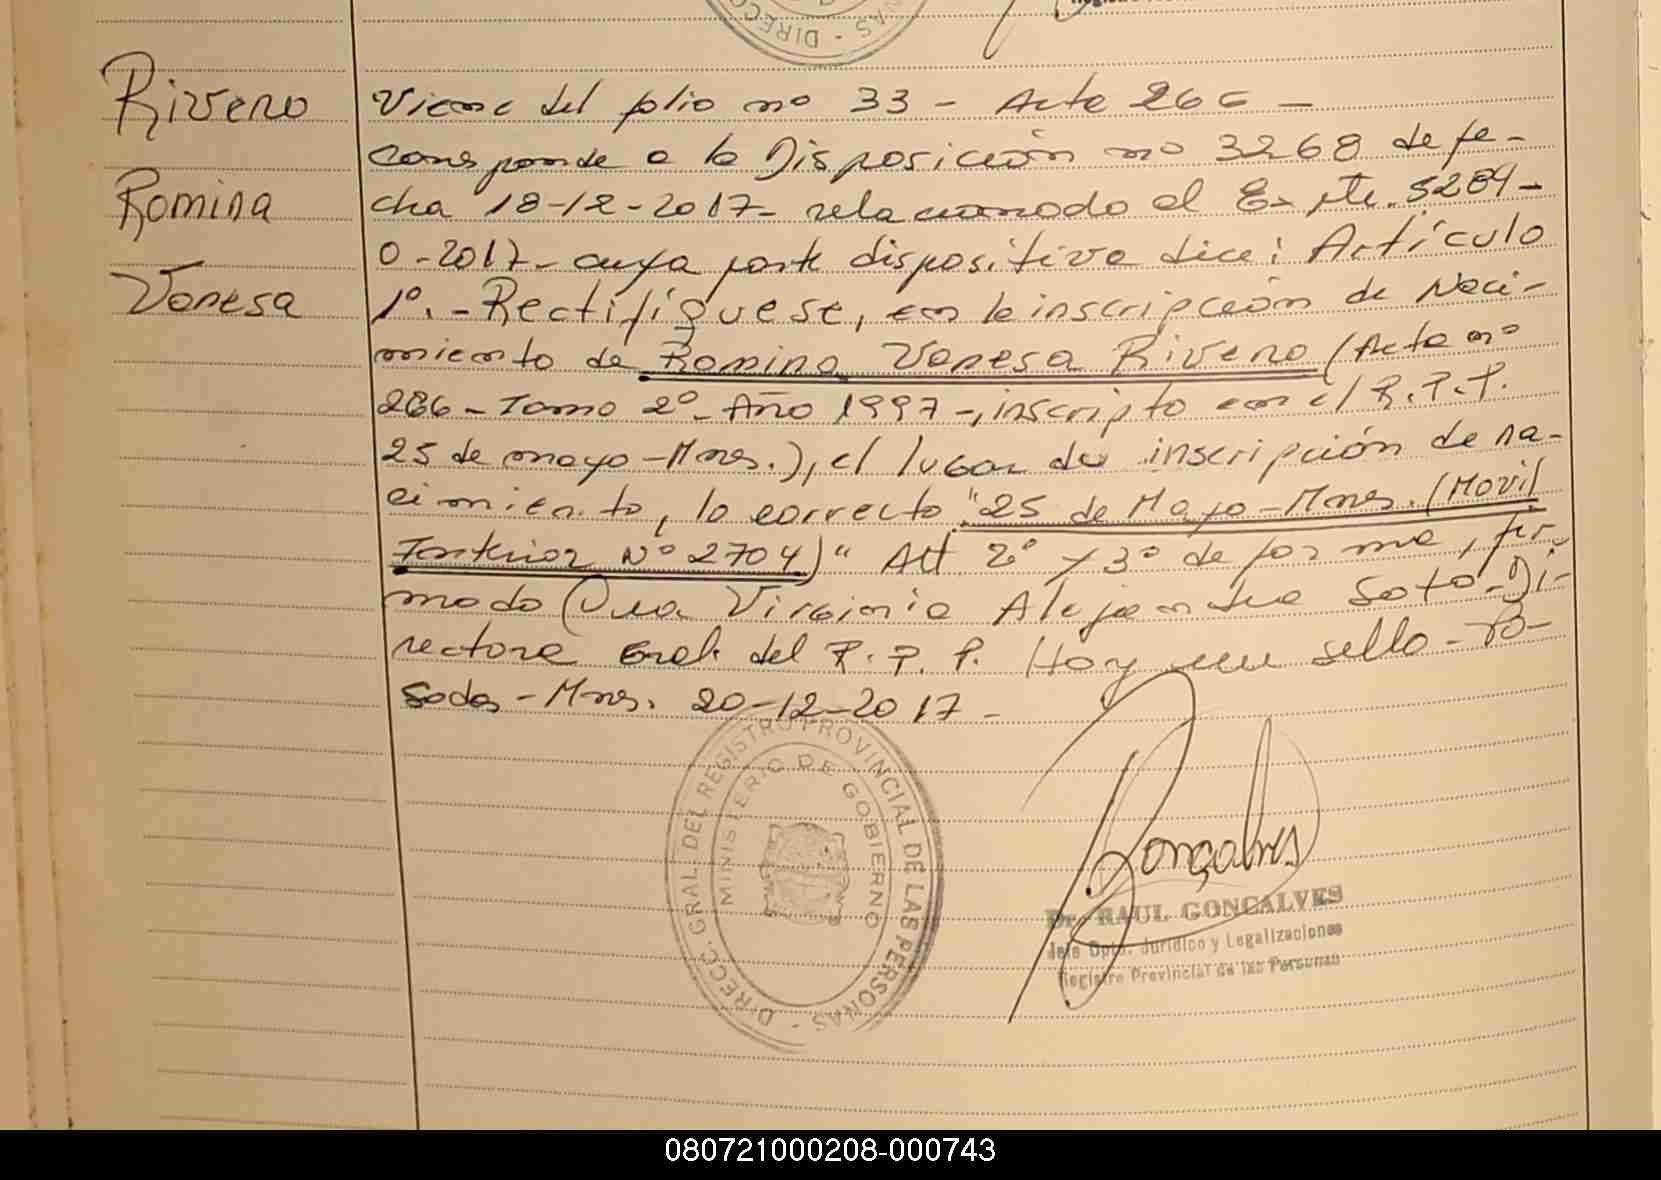 Rivero
Romina
Vanesa
Viene del folio nº 33 - Acta 266 -
Corresponde a la Disposición nº 3268 de fe-
cha 18-12-2017- relacionado al Expte. 5284-
0-2017- cuya parte dispositiva dice: Artículo
1º.- Rectifíquese, en la inscripción de Naci-
miento de Romina Vanesa Rivero (Acta nº
266 - Tomo 2º- Año 1997-, inscripto en el R.P.P.
25 de mayo - Mnes.), el lugar de inscripción de na-
cimiento, lo correcto "25 de Mayo - Mnes. (Movil
Interior Nº 2704)" Art 2º y 3º de forma, fir-
mado Dra Virginia Alejandra Soto - Di-
rectora Gral. del R.P.P. Hay un sello - Po-
sadas - Mnes. 20-12-2017 -
DIRECC. GRAL. DEL REGISTRO PROVINCIAL DE LAS PERSONAS -
MINISTERIO DE GOBIERNO
Gonçalves
Dr. RAUL GONCALVES
Jefe Dpto. Jurídico y Legalizaciones
Registro Provincial de las Personas
NAS - DIRECC
080721000208-000743